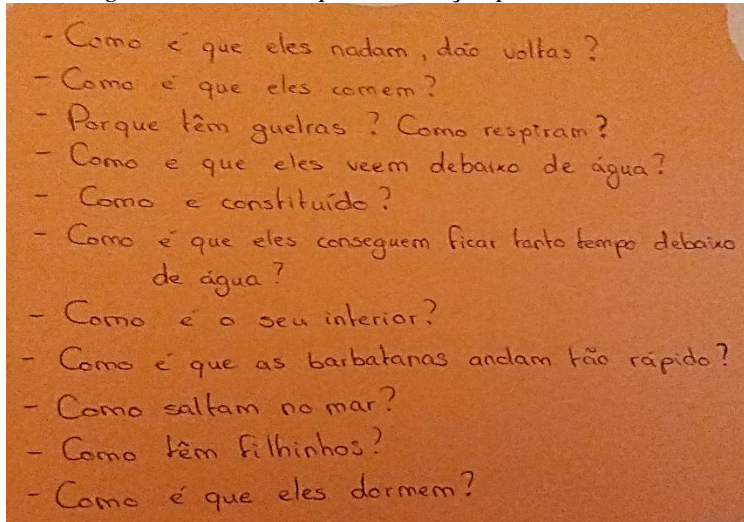 - Como é que eles nadam, dão voltas?
- Como é que eles comem?
- Porque têm guelras? Como respiram?
- Como e que eles veem debaixo de água?
- Como e constituído?
- Como é que eles conseguem ficar tanto tempo debaixo
de água?
- Como é o seu interior?
- Como é que as barbatanas andam tão rápido?
- Como saltam no mar?
- Como têm filhinhos?
- Como é que eles dormem?